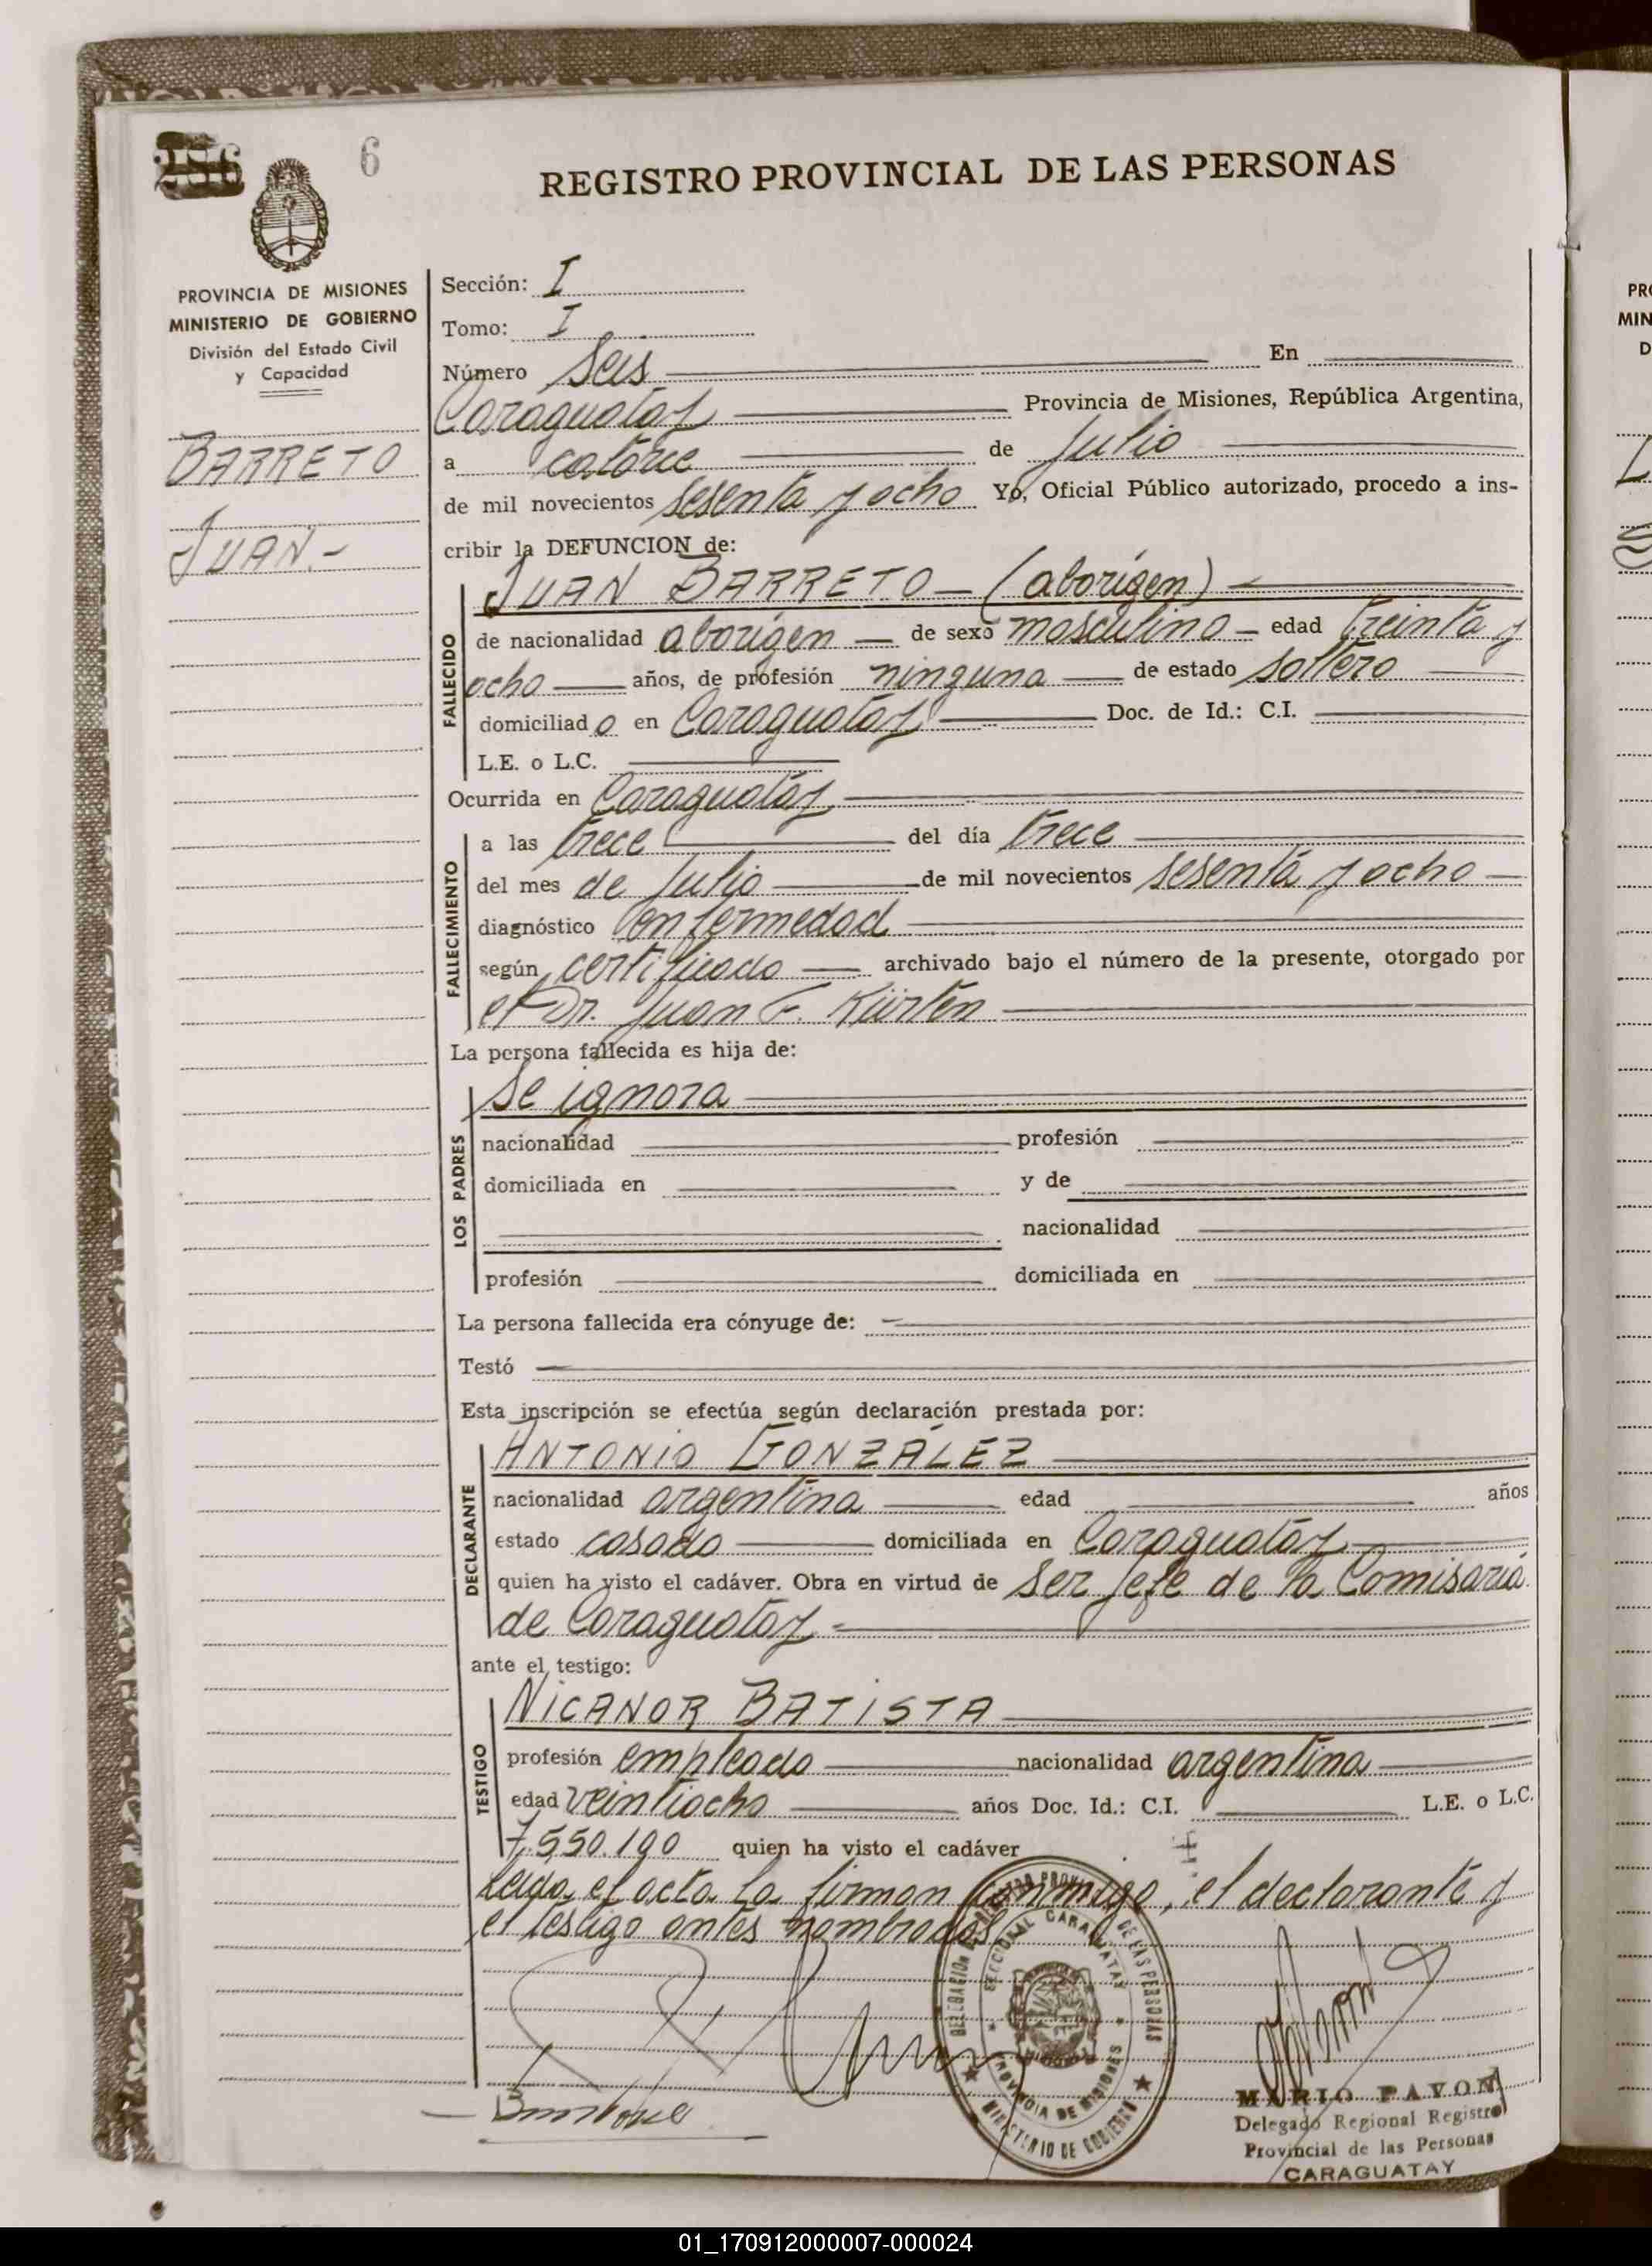 286
6
REGISTRO PROVINCIAL DE LAS PERSONAS
PROVINCIA DE MISIONES
MINISTERIO DE GOBIERNO
División del Estado Civil
y Capacidad
BARRETO
JUAN.-
Sección: I
Tomo: I
Número Seis En
Caraguatay Provincia de Misiones, República Argentina,
a catorce de Julio
de mil novecientos sesenta y ocho Yo, Oficial Público autorizado, procedo a ins-
cribir la DEFUNCION de:
FALLECIDO
JUAN BARRETO - (aborigen)
de nacionalidad aborigen de sexo masculino - edad treinta y
ocho años, de profesión ninguna de estado soltero
domiciliado en Caraguatay Doc. de Id.: C.I.
L.E. o L.C.
Ocurrida en Caraguatay
FALLECIMIENTO
a las trece del día trece
del mes de Julio de mil novecientos sesenta y ocho
diagnóstico enfermedad
según certificado archivado bajo el número de la presente, otorgado por
el Dr. Juan F. Kürten
La persona fallecida es hija de:
LOS PADRES
Se ignora
nacionalidad profesión
domiciliada en y de
nacionalidad
profesión domiciliada en
La persona fallecida era cónyuge de:
Testó
Esta inscripción se efectúa según declaración prestada por:
DECLARANTE
ANTONIO GONZÁLEZ
nacionalidad argentina edad años
estado casado domiciliada en Caraguatay
quien ha visto el cadáver. Obra en virtud de ser Jefe de la Comisaría
de Caraguatay.-
ante el testigo:
TESTIGO
NICANOR BATISTA
profesión empleado nacionalidad argentina
edad veintiocho años Doc. Id.: C.I. L.E. o L.C.
7.550.190 quien ha visto el cadáver
Leída el acta la firman conmigo, el declarante y
el testigo antes nombrados
DELEGACION REGISTRO PROVINCIAL DE LAS PERSONAS
SECCIONAL CARAGUATAY
PROVINCIA DE MISIONES
MINISTERIO DE GOBIERNO
MARIO PAVON
Delegado Regional Registro
Provincial de las Personas
CARAGUATAY
01_170912000007-000024